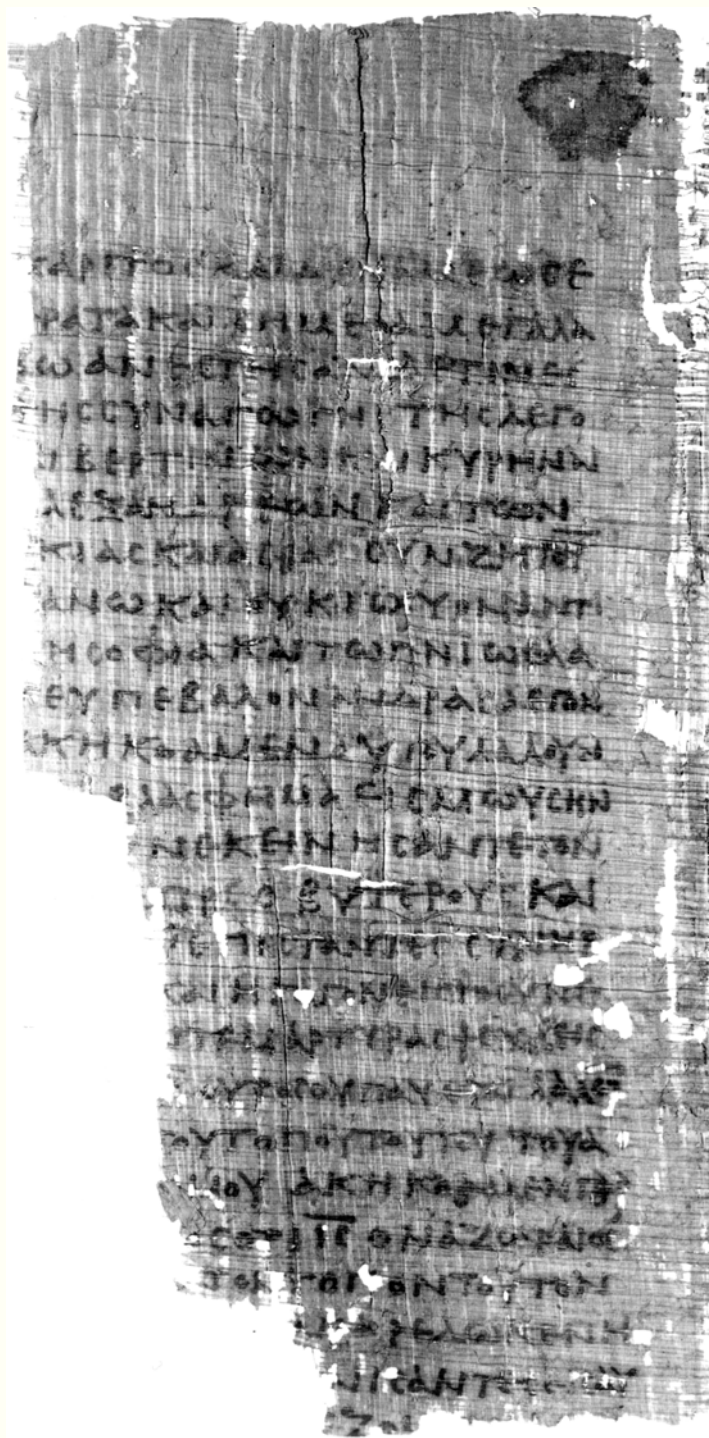 ΧΑΡΙΤΟϹΚΑΙΔΥΝΑΜΕΩϹΕ
ΡΑΤΑΚΑΙϹΗΜΕΙΑΜΕΓΑΛΑ
ΛΩΑΝΕϹΤΗϹΑΝΔΕΤΙΝΕϹ
ΗϹϹΥΝΑΓΩΓΗϹΤΗϹΛΕΓΟ
ΙΒΕΡΤΙΝΩΝΚΑΙΚΥΡΗΝΝ
ΛΕΞΑΝΔΡΕΩΝΚΑΙΤΩΝ
ΚΙΑϹΚΑΙΑϹΙΑϹϹΥΝΖΗΤΟΥ
ΑΝΩΚΑΙΟΥΚΙϹΧΥΟΝΑΝΤΙ
ΗϹΟΦΙΑΚΑΙΤΩΠΝΙΩΕΛΑ
ΤΕΥΠΕΒΑΛΟΝΑΝΔΡΑϹΛΕΓΟΝ
ΑΚΗΚΟΑΜΕΝΑΥΤΟΥΛΑΛΟΥΝ
ΛΑϹΦΗΜΑΕΙϹΜΩΥϹΗΝ
ΝΕΚΕΙΝΗϹΑΝΤΕΤΟΝ
ΠΡΕϹΒΥΤΕΡΟΥϹΚΑΙ
ΕΠΙϹΤΑΝΤΕϹϹΥΝΗΡ
ΚΑΙΗΓΑΓΟΝΕΙϹΤΟϹΥΝΕ
ΤΕΜΑΡΤΥΡΑϹΨΕΥΔΕΙϹ
ΟΥΤΟϹΟΥΠΑΥΕΤΑΙΛΑΛΕ
ΤΟΥΤΟΠΟΥΤΟΥΤΟΥΤΟΥΑ
ΜΟΥΑΚΗΚΟΑΜΕΝΓΑΡ
ϹΟΤΙΙϹΟΝΑΖΩΡΑΙΟϹ
ΤΟΝΤΟΠΟΝΤΟΥΤΟΝ
ΚΑΘΕΛΩΝΕΝΗ
ΝΙϹΑΝΤΕϹ
ΖΟ